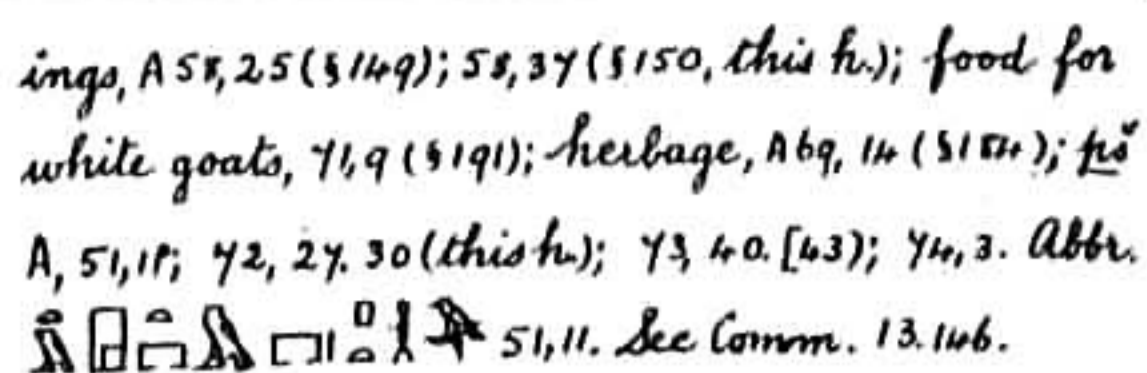 ings, A 58, 25 (§149); 58, 37 (§150, this h.); food for
white goats, 71, 9 (§191); herbage, A 69, 14 (§184); pš
A, 51, 18; 72, 27. 30 (this h.); 73, 40. [43); 74, 3. Abbr.
51, 11. See Comm. 13. 146.